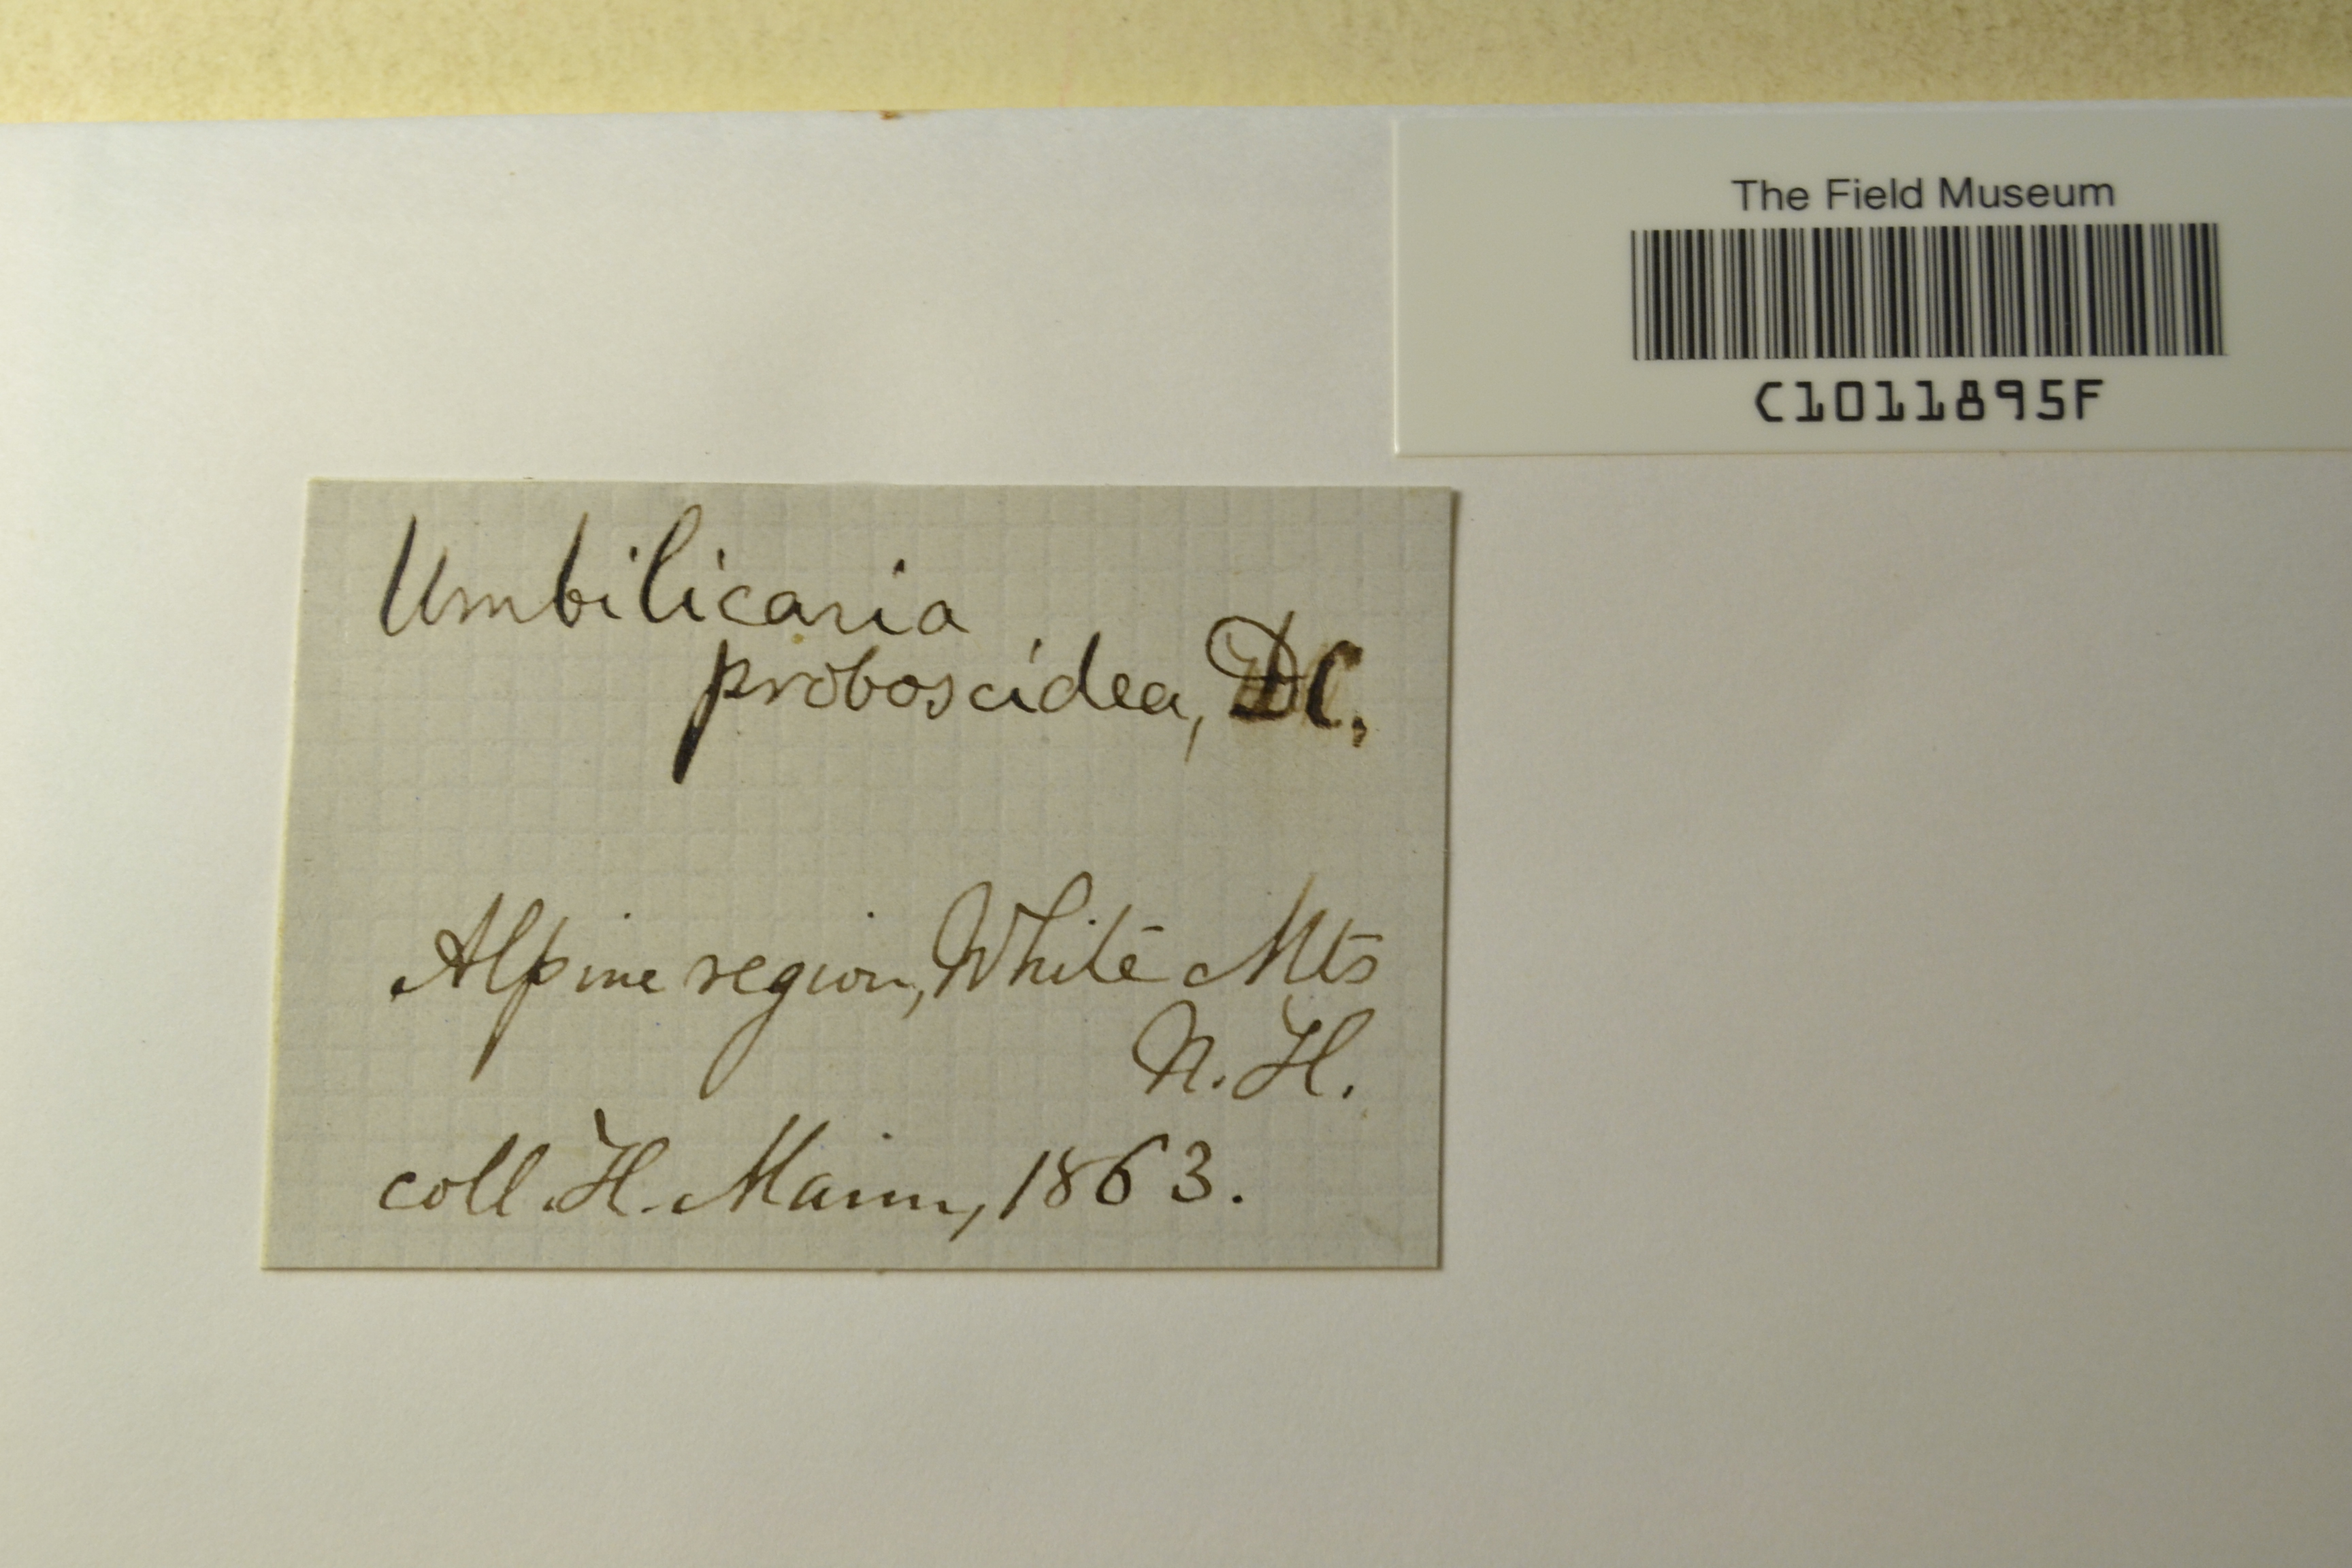 The Field Museum
C1011895F
Umbilicaria
proboscidea, DC.
Alpine region, White Mts
N. H.
coll. H. Mann, 1863.